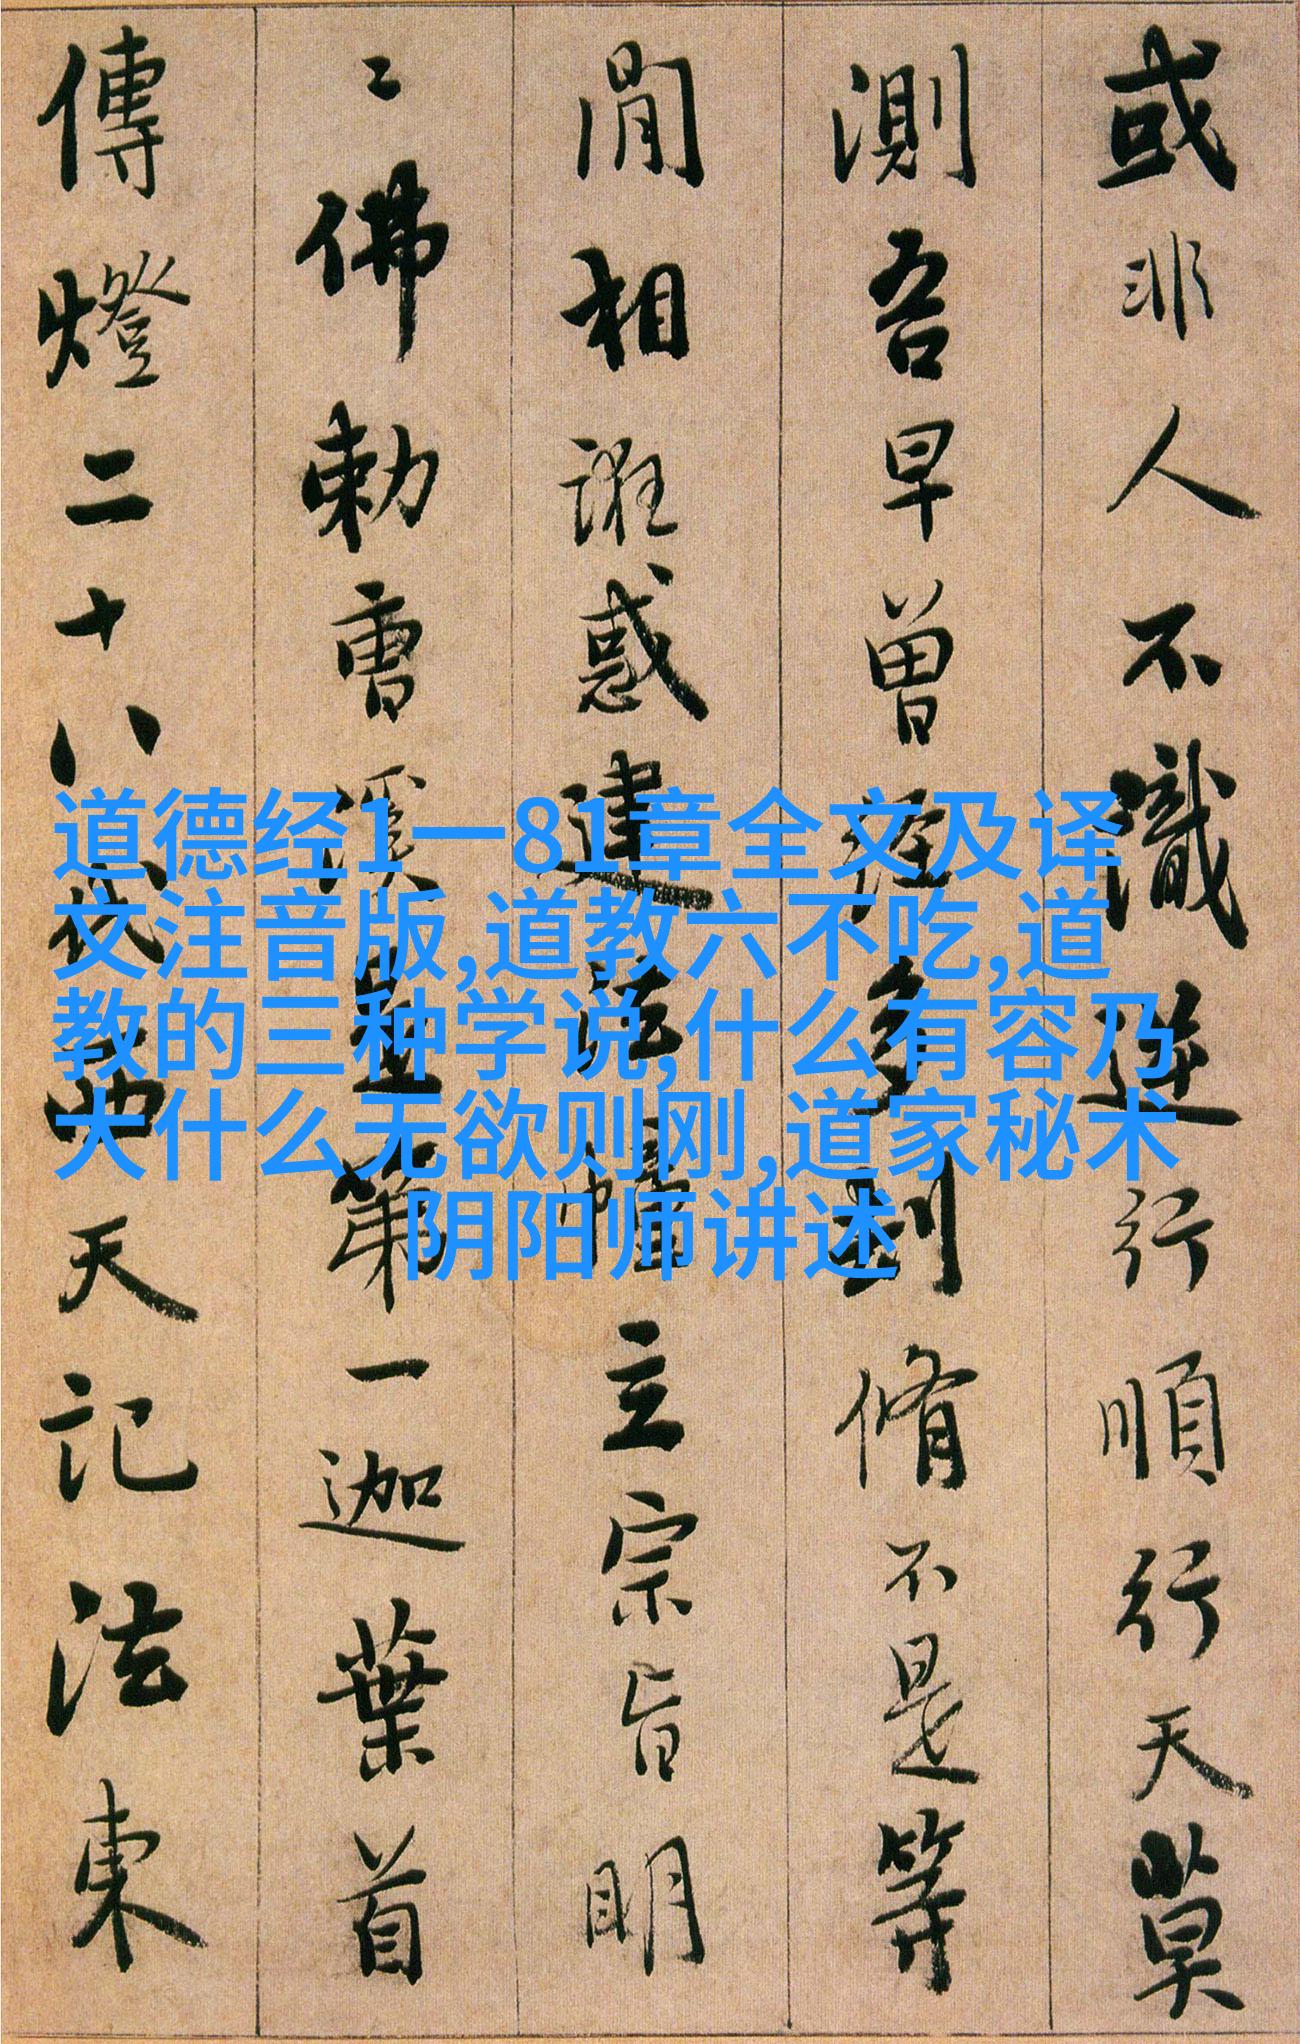 或非人不識逆行順行天莫
測吾早曾經多刧脩不是等
閒相誑惑建法幢立宗旨明
〻佛勅曹溪是第一迦葉首
傳燈二十八代西天記法東
道德经1一81章全文及译
文注音版,道教六不吃,道
教的三种学说,什么有容乃
大什么无欲则刚,道家秘术
阴阳师讲述